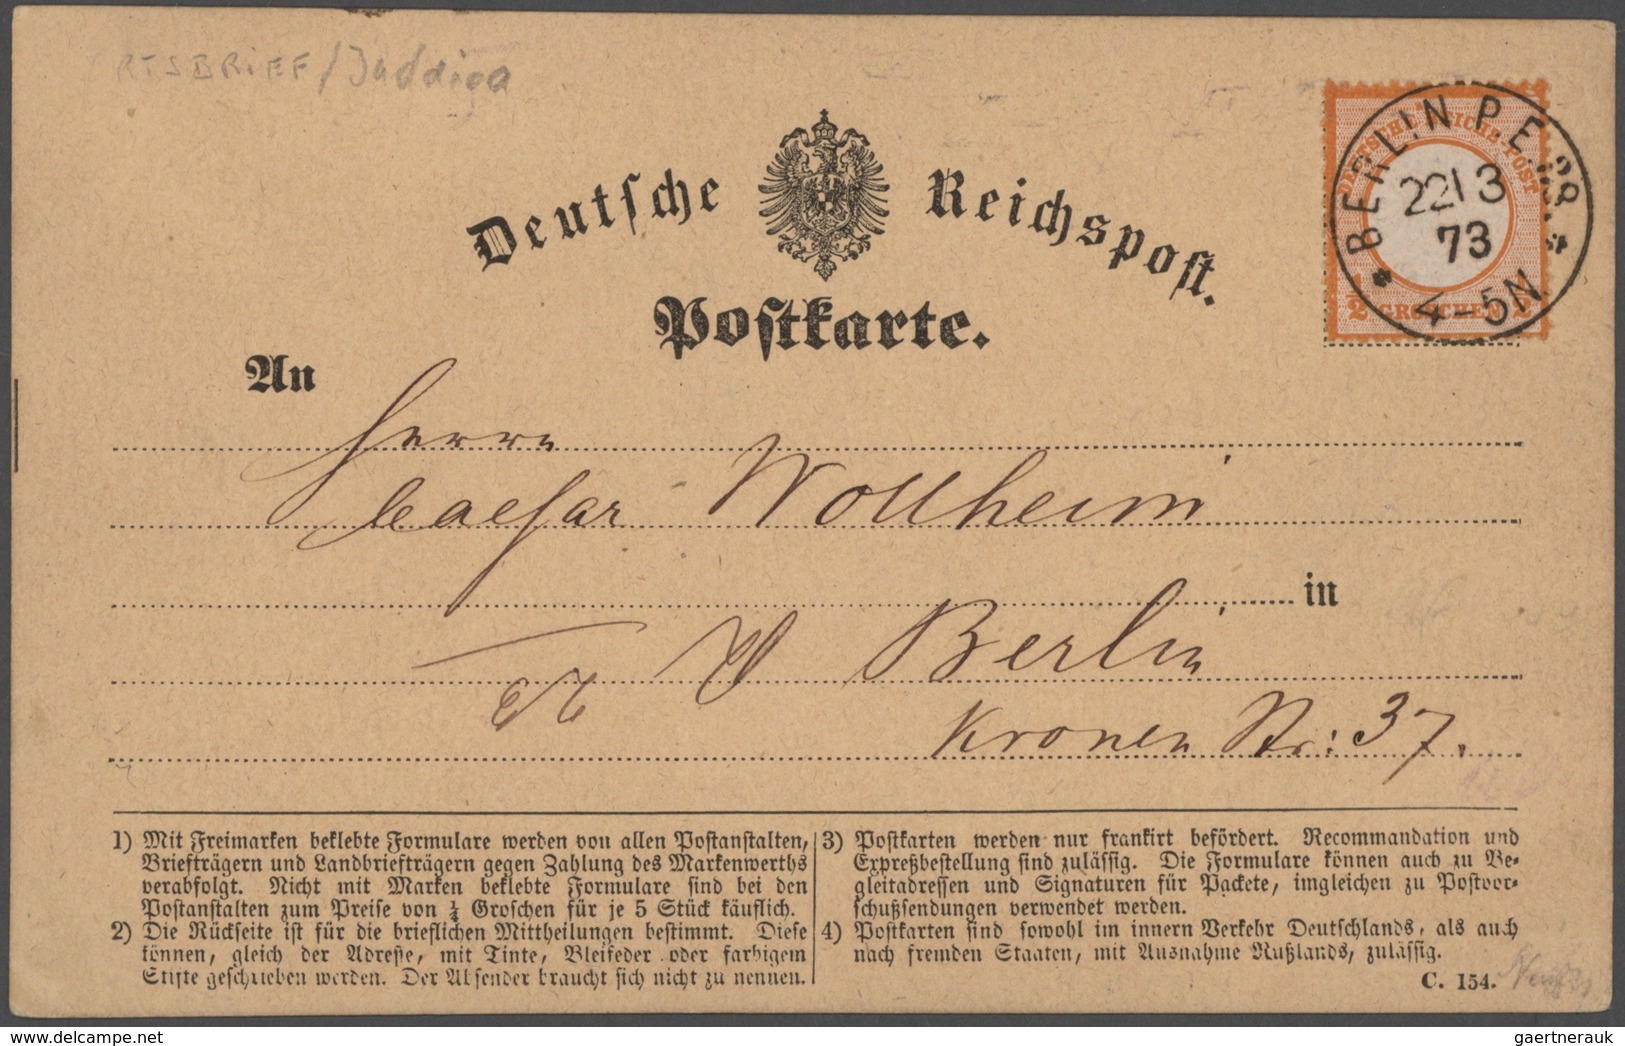 RTSBRIEF/Juddiga
Deutsche Reichspost.
Postkarte.
BERLIN P.E. 28.
22 3
73
4-5N
DEUTSCHE REICHS-POST
1/2 GROSCHEN 1/2
An
Herrn
Caesar Wollheim
in
W Berlin
Kronen Str: 37.
1) Mit Freimarken beklebte Formulare werden von allen Postanstalten,
Briefträgern und Landbriefträgern gegen Zahlung des Markenwerths
verabfolgt. Nicht mit Marken beklebte Formulare sind bei den
Postanstalten zum Preise von ¼ Groschen für je 5 Stück käuflich.
2) Die Rückseite ist für die brieflichen Mittheilungen bestimmt. Diese
können, gleich der Adresse, mit Tinte, Bleifeder oder farbigem
Stifte geschrieben werden. Der Absender braucht sich nicht zu nennen.
3) Postkarten werden nur frankirt befördert. Recommandation und
Expreßbestellung sind zulässig. Die Formulare können auch zu Be-
gleitadressen und Signaturen für Packete, imgleichen zu Postvor-
schußsendungen verwendet werden.
4) Postkarten sind sowohl im innern Verkehr Deutschlands, als auch
nach fremden Staaten, mit Ausnahme Rußlands, zulässig.
C. 154.
www.delcampe.net
gaertnerauk